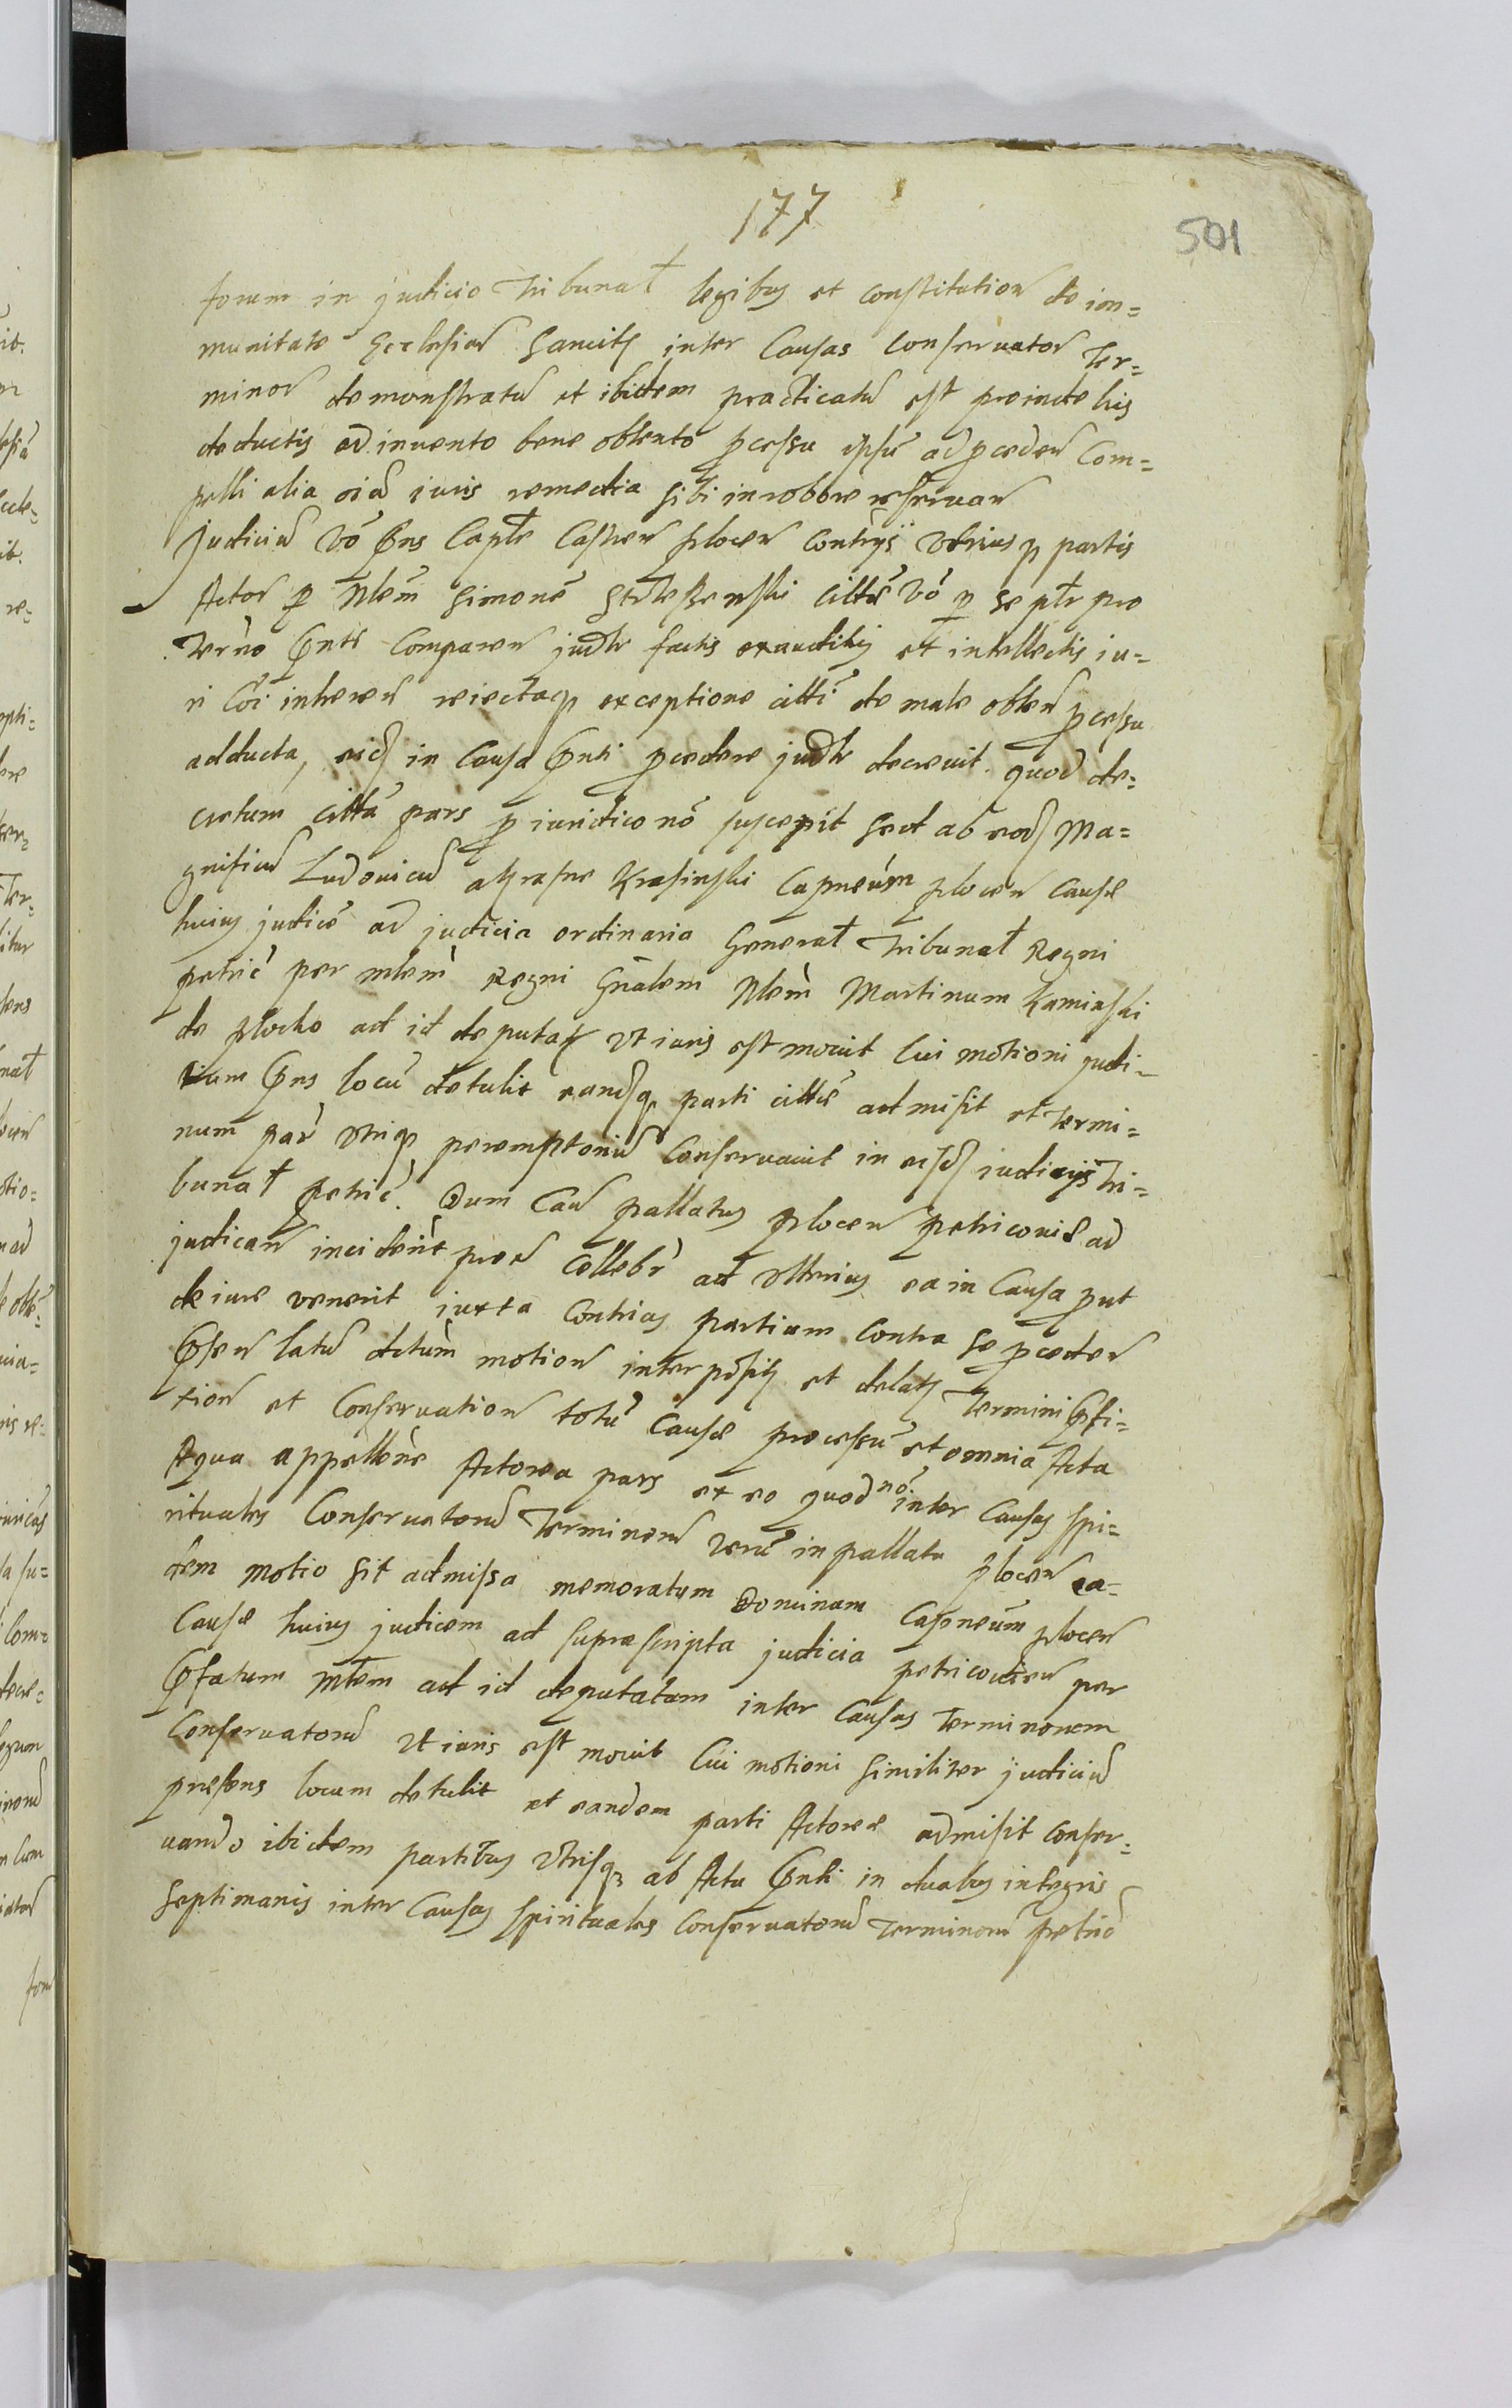 177
501
forum in judicio Tribunał legibus et constitution de im=
munitate Ecclesiar sancits inter Causas Conseruator Ter=
minor demonstratu et ibidem practicatu est proinde his
deductis ad inuento bene obtento pcessu ipsu ad pceden Com=
pelli alia oia iuris remedia sibi in robore reseruar
Judiciu vo pns Capłe Castren plocen Contrijs vtriusq partis
Actor p Nłem Simone cittæ vo p se płr pro
Terno pnte Comparen judłr factis exauditis et intellectis iu=
ri Coi inheren reiectaq exceptione citti de male obten pcessu
adducta, eisd in Causa pnti pcedere judłr decreuit. quod de=
cretum citta pars p iuridico no suscepit sed ab eod Ma=
gnificu Ludouicu a Krasne Krasinski Capneum plocen Causæ
huius judice ad judicia ordinaria Generał Tribunał Regni
petric per młem Regni Gnalem Nłem Martinum Kamiaski
de plocko ad id deputat vt iuris est mouit Cui motioni judi=
cium pns locu detulit eandq parti cittæ admisit et termi=
num par vtriq peremptoriu Conseruauit in eisd iudicijs Tri=
bunał petric. Dum Cau pallatus plocen petricouiæ ad
judican inciderit pro Cellebr ad vlterius ea in Causa put
de iure venerit iuxta Contrias partium Contra se pceden
psen latu dctum motion interposits et delats Termini pfi=
xion et Conseruation totu Causæ processu et omnia Acta
Aqua appellone Actorea pars ex eo quod no inter Causas spi=
rituales Conseruatoru Terminoru veru in pallatu plocen ea=
dem motio sit admissa memoratum Dominum Capneum plocen
Causæ huius judicem ad suprascripta judicia petricouien per
pfatum Młem ad id deputatum inter Causas Terminorum
Conseruatoru vt iuris est mouit Cui motioni similiter judiciu
præsens locum detulit et eandem parti Actoreæ admisit Conser=
uando ibidem partibus vtrisq ab Actu pnti in duabus integris
septimanis inter Causas spirituales Conseruatoru Terminoru petric